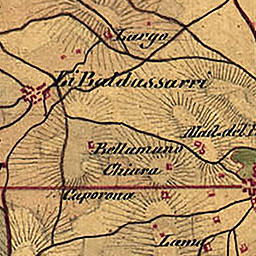 Largo
Li Baldassarri
Mad. del
Bellamano
Chiara
Caporona
Lama